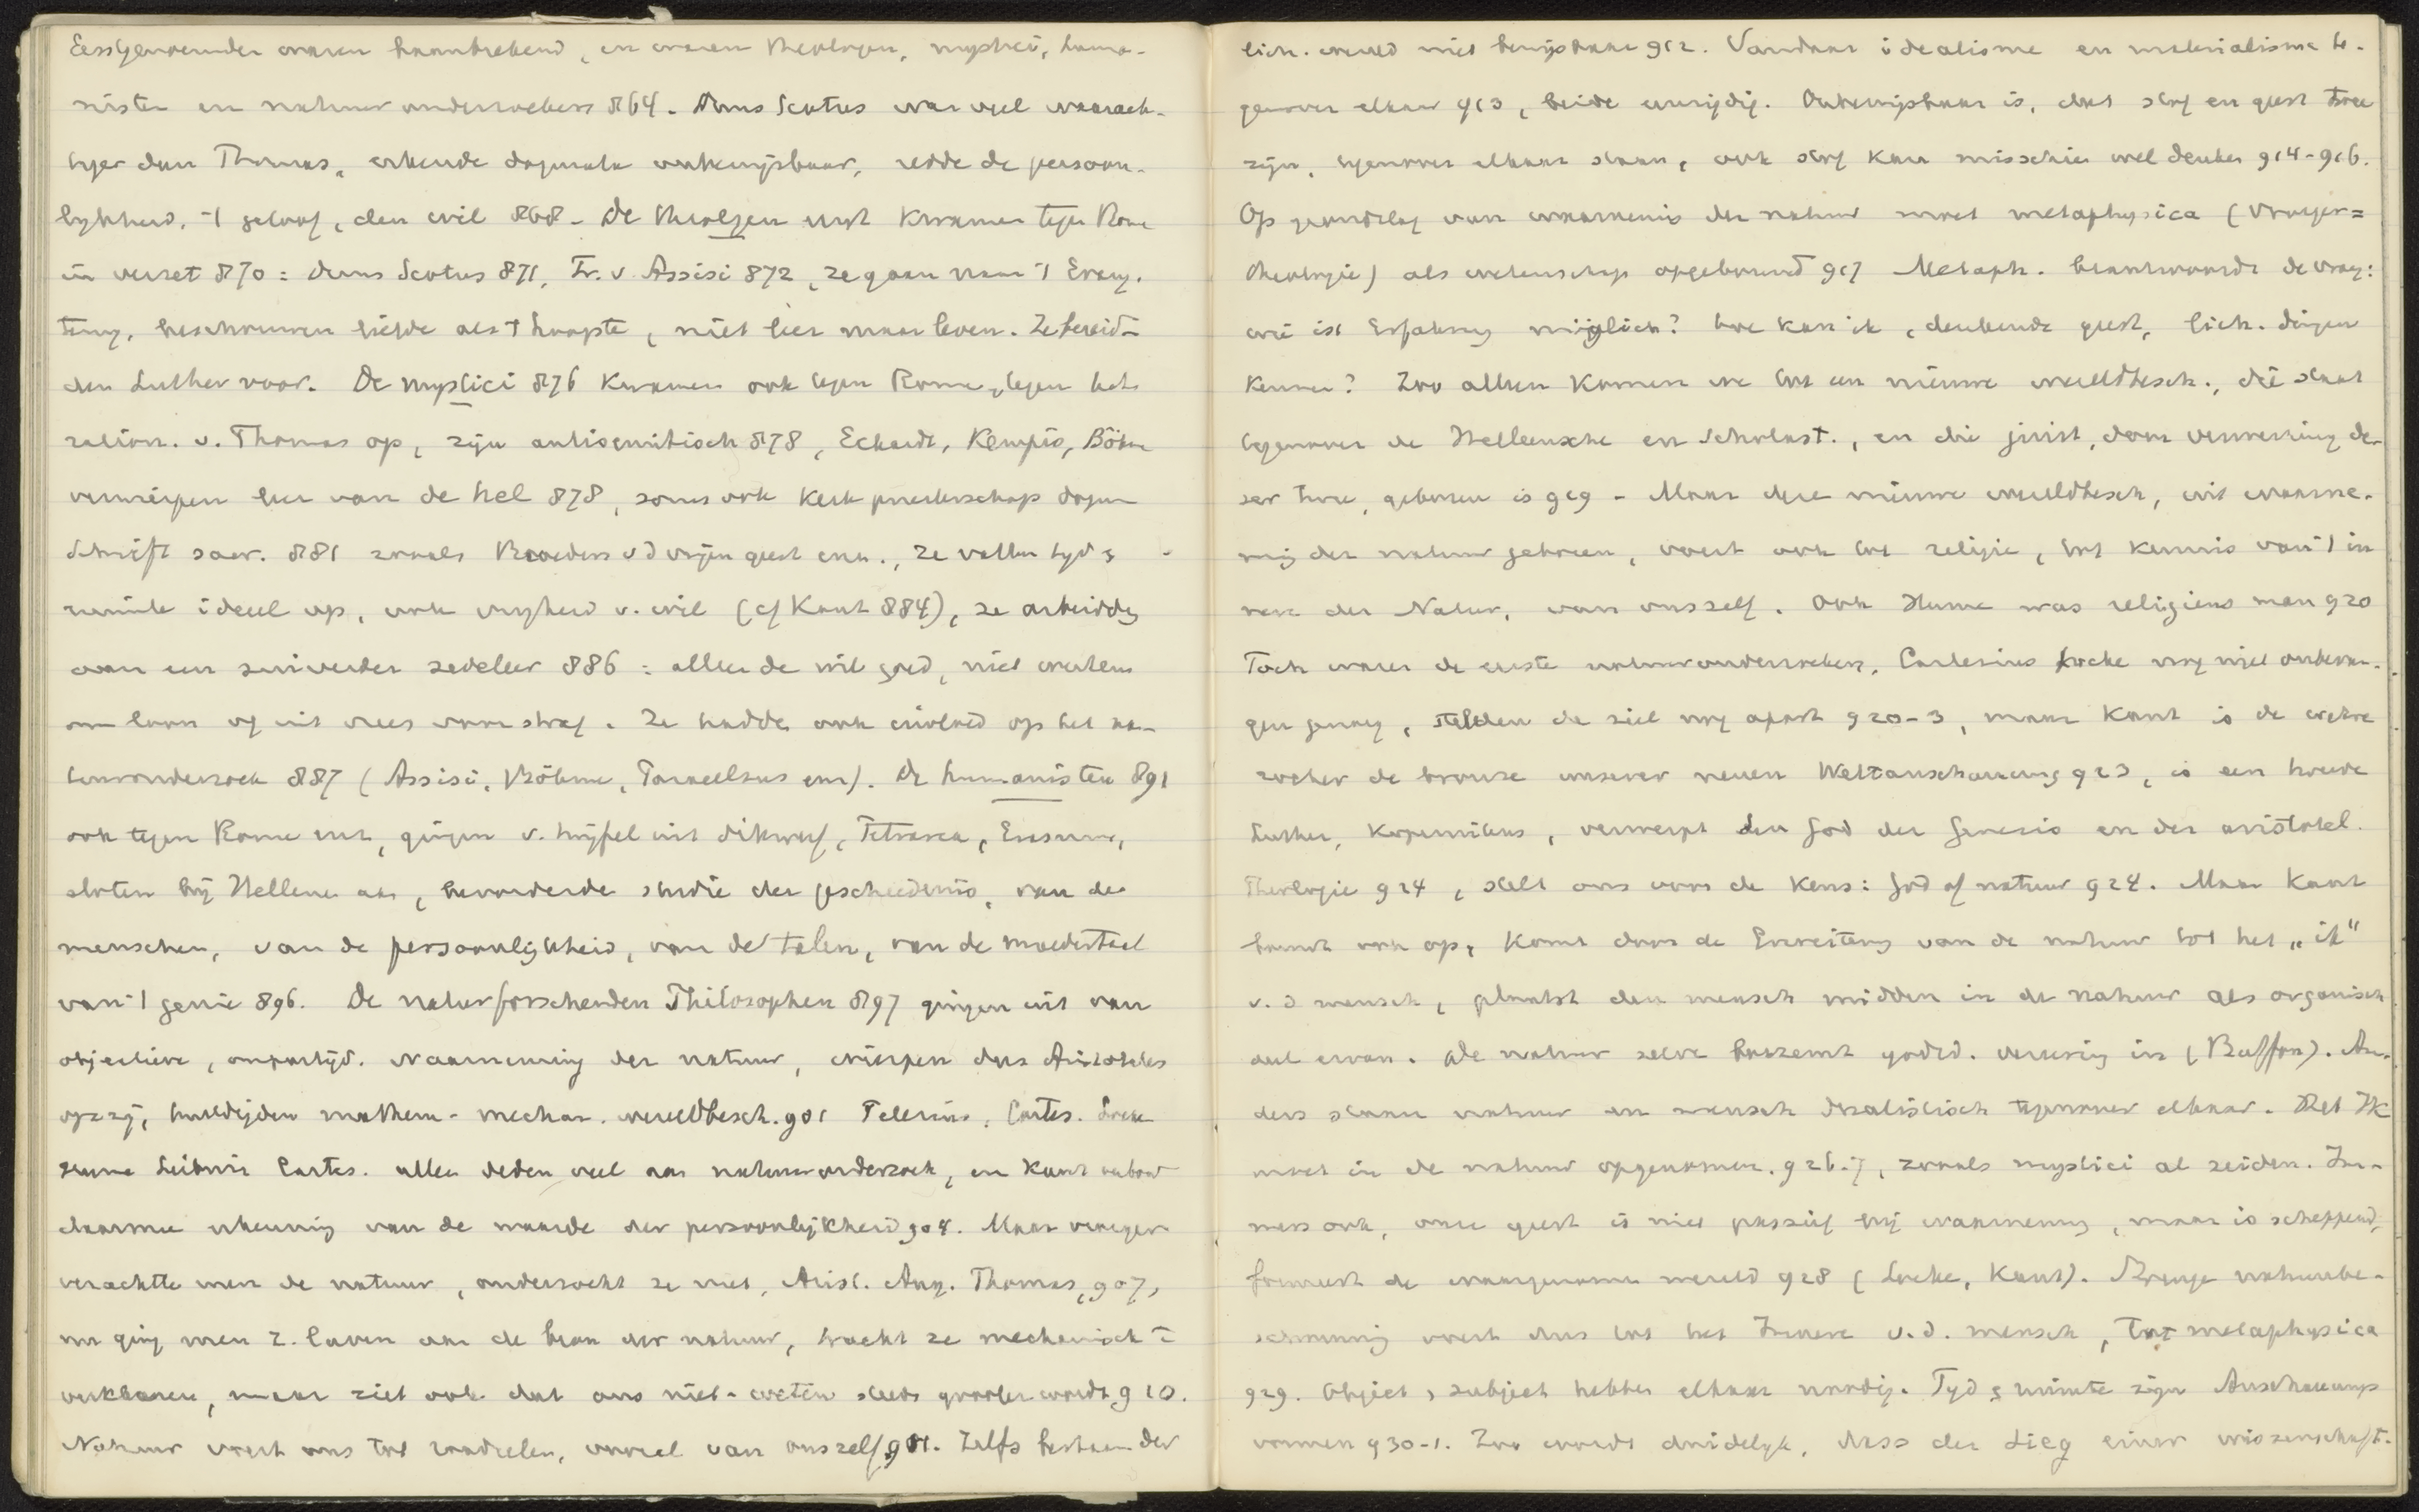 Eerstgenoemden waren baanbrekend, en waren theologen, mystici, huma-
nisten en natuuronderzoekers 864. Duns Scotus was veel waarach-
tiger dan Thomas, erkende dogmata onbewijsbaar, redde de persoon-
lykheid, 't geloof, den wil 868 - De theologen eerst kwamen tegen Rome
in verzet 870 : Duns Scotus 871, Fr. v. Assisi 872, ze gaan naar 't Evang.
terug, beschouwen liefde als 't hoogste, niet leer maar leven. Ze bereid-
den Luther voor. De mystici 876 kwamen ook tegen Rome, tegen het
ration. v. Thomas op, zijn antisemitisch 878, Eckardt, Kempis, Böhme
verwerpen leer van de hel 878, soms ook kerk priesterschap dogma
Schrift sacr. 881 zooals Broeders v d vrijen geest enz., ze vatten tyd &
ruimte ideeel op, ook vryheid v. wil (cf Kant 884), ze arbeidde
aan een zuiverder zedeleer 886 : alleen de wil goed, niet werken
om loon of uit vrees voor straf. Ze hadden ook invloed op het na-
tuuronderzoek 887 (Assisi, Böhme, Paracelsus enz). De humanisten 891
ook tegen Rome enz, gingen v. twijfel uit dikwerf, Petrarca, Erasmus,
sloten bij Hellenen aan, bevorderde studie der geschiedenis, van de
menschen, van de persoonlijkheid, van de talen, van de moedertaal
van 't genie 896. De naturforschenden Philosophen 897 gingen uit van
objectieve, onpartijd. waarneming der natuur, wierpen dus Aristoteles
opzij, huldigden mathem.- mechan. wereldbesch. 901 Telesius, Cartes. Locke
Hume Leibniz Cartes. allen deden veel aan natuuronderzoek, en Kant
daarmee erkenning van de waarde der persoonlijkheid 904. Maar vroeger
verachtte men de natuur, onderzocht ze niet, Arist. Aug. Thomas, 907,
nu ging men z. laven aan de bron der natuur, tracht ze mechanisch te
verklaren, maar ziet ook dat ons niet-weten steeds grooter wordt 910.
Natuur voert ons tot raadselen, vooral van ons zelf 911. Zelfs bestaan der
lich. wereld niet bewijsbaar 912. Vandaar idealisme en materialisme te-
genover elkaar 913, beide eenzijdig. Onbewijsbaar is, dat stof en geest twee
zijn, tegenover elkaar staan, ook stof kan misschien wel denken 914-916.
Op grondslag van waarneming der natuur moet metaphysica (vroeger =
theologie) als wetenschap opgebouwd 917 Metaph. beantwoordt de vraag:
wie ist Erfahrung möglich? hoe kan ik, denkende geest, lich. dingen
kennen? Zoo alleen komen we tot een nieuwe wereldbesch., die staat
tegenover de Helleensche en Scholast., en die juist, door verwerping de-
zer twee, geboren is 919 - Maar deze nieuwe wereldbesch, uit waarne-
ming der natuur geboren, voert ook tot religie, tot kennis van 't in
nere der Natuur, van ons zelf. Ook Hume was religieus man 920
Toch waren de eerste natuuronderzoekers, Cartesius Locke nog niet onbevan-
gen genoeg, stelden de ziel nog apart 920-3, maar Kant is de wahre
rocher de bronze unserer neuen Weltanschauung 923, is een tweede
Luther, Kopernikus, verwerpt den God der Genesis en der aristotel.
Theologie 924, stelt ons voor de keus: God of natuur 924. Maar Kant
bouwt ook op, komt door de Erweiterung van de natuur tot het „ik"
v. d mensch, plaatst den mensch midden in de natuur als organisch
deel ervan. De natuur zelve boezemt godsd. vereering in (Buffon). An-
ders staan natuur en mensch dualistisch tegenover elkaar. Het Ik
moet in de natuur opgenomen. 926-7, zooals mystici al zeiden. Im-
mers ook, onze geest is niet passief bij waarneming, maar is scheppend,
formeert de waargenomen wereld 928 (Locke, Kant). Strenge natuurbe-
schouwing voert dus tot het Innere v. d. mensch, tot metaphysica
929. Object & subject hebben elkaar noodig. Tyd & ruimte zijn Anschauungs
vormen 930-1. Zoo wordt duidelyk, dass der Sieg einer wissenschaft-